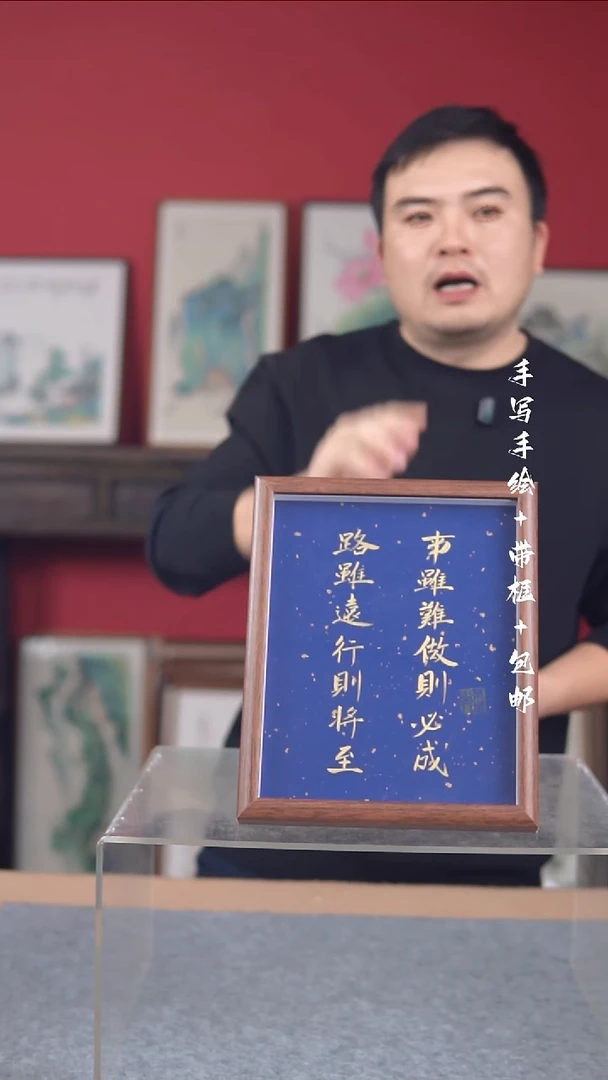 手写手绘+带框+包邮
事雖難做則必成
路雖遠行則將至